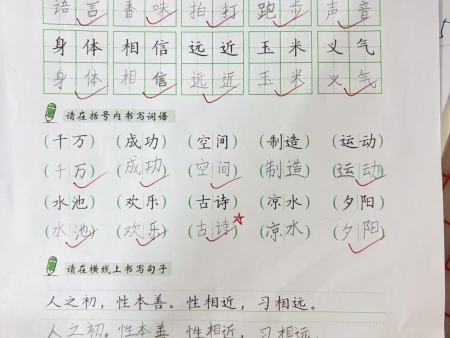 语言 香味 拍打 跑步 声音
身体 相信 远近 玉米 义气
身体 相信 远近 玉米 义气
请在括号内书写词语
(千万) (成功) (空间) (制造) (运动)
(千万) (成功) (空间) (制造) (运动)
(水池) (欢乐) (古诗) (凉水) (夕阳)
(水池) (欢乐) (古诗) (凉水) (夕阳)
请在横线上书写句子
人之初，性本善。性相近，习相远。
人之初，性本善 性相近，习相远。